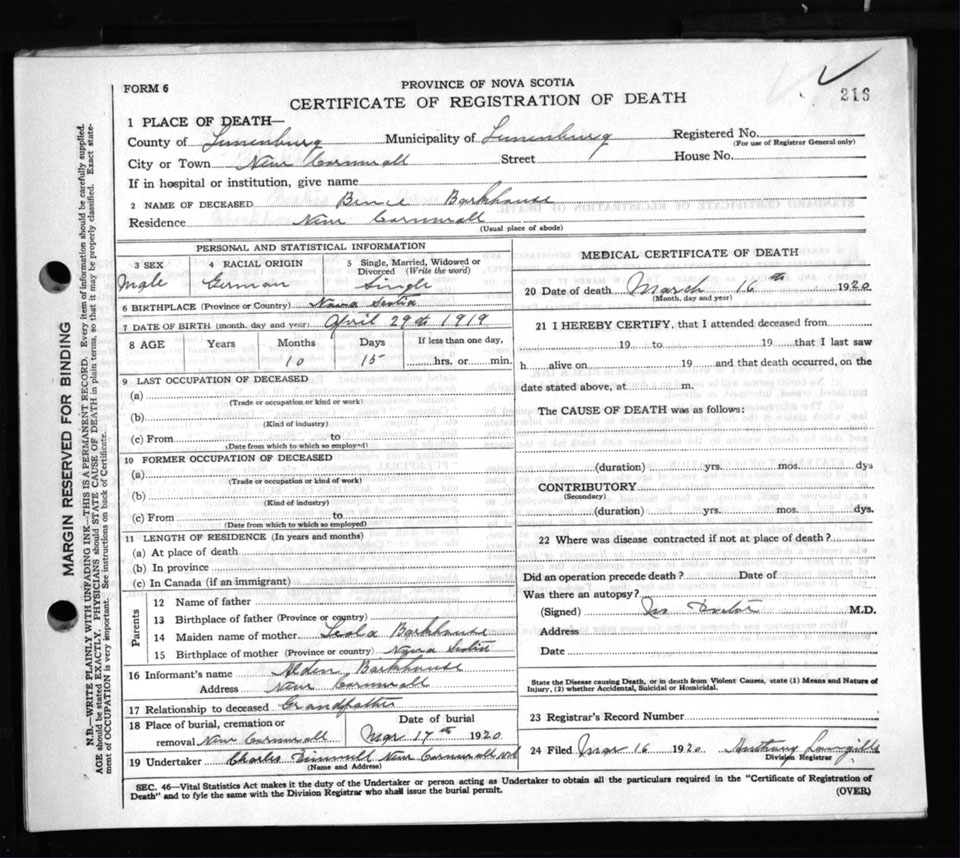 216
FORM 6
PROVINCE OF NOVA SCOTIA
CERTIFICATE OF REGISTRATION OF DEATH
1 PLACE OF DEATH—
County of Lunenburg Municipality of Lunenburg Registered No.
(For use of Registrar General only)
City or Town New Cornwall Street House No.
If in hospital or institution, give name
2 NAME OF DECEASED Barkhouse
Residence New Cornwall
(Usual place of abode)
PERSONAL AND STATISTICAL INFORMATION
3 SEX
Male
4 RACIAL ORIGIN
German
5 Single, Married, Widowed or Divorced (Write the word)
Single
6 BIRTHPLACE (Province or Country) Nova Scotia
7 DATE OF BIRTH (month, day and year) April 29th 1919
8 AGE Years Months Days If less than one day,
10 15 hrs. or min.
9 LAST OCCUPATION OF DECEASED
(a)
(Trade or occupation or kind or work)
(b)
(Kind of industry)
(c) From to
(Date from which to which so employed)
10 FORMER OCCUPATION OF DECEASED
(a)
(Trade or occupation or kind of work)
(b)
(Kind of industry)
(c) From to
(Date from which to which so employed)
11 LENGTH OF RESIDENCE (In years and months)
(a) At place of death
(b) In province
(c) In Canada (if an immigrant)
Parents
12 Name of father
13 Birthplace of father (Province or country)
14 Maiden name of mother Leola Barkhouse
15 Birthplace of mother (Province or country) Nova Scotia
16 Informant's name Alden Barkhouse
Address New Cornwall
17 Relationship to deceased Grandfather
18 Place of burial, cremation or removal New Cornwall
Date of burial
Mar 17th 1920
19 Undertaker Charles New Cornwall
(Name and Address)
MEDICAL CERTIFICATE OF DEATH
20 Date of death March 16th 1920
(Month, day and year)
21 I HEREBY CERTIFY, that I attended deceased from
19 to 19 that I last saw
h alive on 19 and that death occurred, on the
date stated above, at m.
The CAUSE OF DEATH was as follows:
(duration) yrs. mos. dys
CONTRIBUTORY
(Secondary)
(duration) yrs. mos. dys.
22 Where was disease contracted if not at place of death?
Did an operation precede death? Date of
Was there an autopsy?
(Signed) No Doctor M.D.
Address
Date
State the Disease causing Death, or in death from Violent Causes, state (1) Means and Nature of
Injury, (2) whether Accidental, Suicidal or Homicidal.
23 Registrar's Record Number
24 Filed Mar 16 1920 Anthony
Division Registrar
SEC. 46—Vital Statistics Act makes it the duty of the Undertaker or person acting as Undertaker to obtain all the particulars required in the "Certificate of Registration of
Death" and to fyle the same with the Division Registrar who shall issue the burial permit.
(OVER)
MARGIN RESERVED FOR BINDING
N.B.—WRITE PLAINLY WITH UNFADING INK—THIS IS A PERMANENT RECORD. Every item of information should be carefully supplied.
AGE should be stated EXACTLY. PHYSICIANS should STATE CAUSE OF DEATH in plain terms, so that it may be properly classified. Exact state-
ment of OCCUPATION is very important. See instructions on back of Certificate.